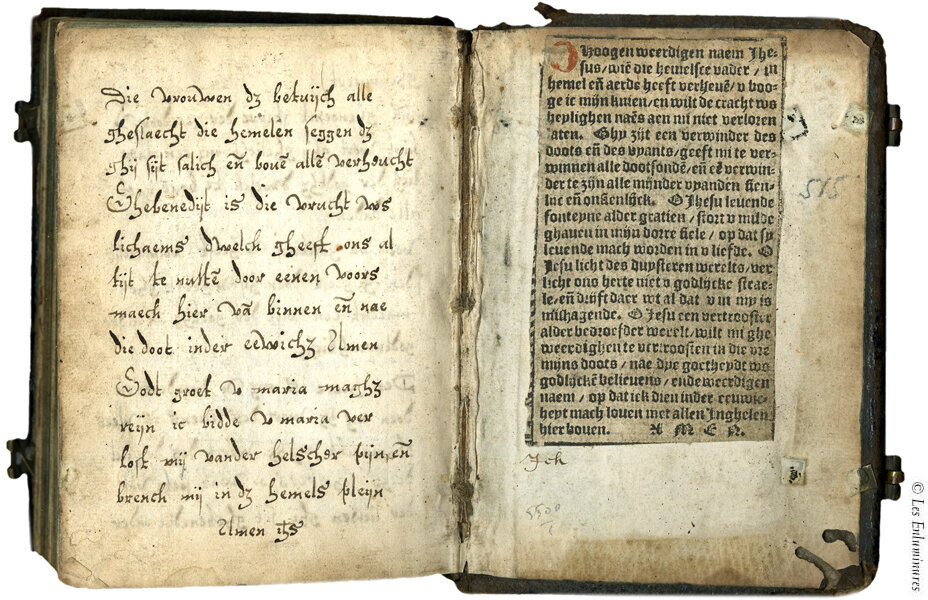 Die vrouwen dz betuijch alle
gheslaecht die hemelen seggen dz
ghij sijt salich eñ bovē allē verheucht
Ghebenedijt is die vrucht ws
lichaems dwelch gheeft ons al
tijt te nuttē door eenen voors
maech hier vā binnen eñ nae
die doot inder eewichz Amen
Godt groet v maria maghz
reijn ic bidde v maria ver
lost mij vander helscher pijn, eñ
brench mij in dz hemels pleijn
Amen ihs
O Hoogen weerdigen naem Jhe-
sus/wiē die hemelsce vader/in
hemel eñ aerde heeft verheuē/v boo-
ge ic mijn knien/en wilt de cracht ws
heylighen naēs aen mi niet verloren
laten. Ghy zijt een verwinder des
doots eñ des vyants/geeft mi te ver-
winnen alle dootsondē/eñ eē verwin-
der te zijn alle mijnder vyanden sien-
lijc eñ onsienlijck. O Jhesu leuende
fonteyne alder gratien/stort v milde
ghauen in mijn dorre siele/op dat sy
leuende mach worden in v liefde. O
Jesu licht des duysteren werelts/ver
licht ons herte met v godlijcke strae-
le/eñ drijft daer wt al dat v in my is
mishagende. O Jesu een vertrooster
alder bedroefder werelt/wilt mi ghe
weerdighen te vertroosten in die vre
mijns doots/nae dye goetheydt ws
godlijckē believens/ende weerdigen
naem/op dat ick dien inder eeuwic-
heyt mach louen met allen Inghelen
hier bouen. A M E N.
515
Ich
5500
© Les Enluminures